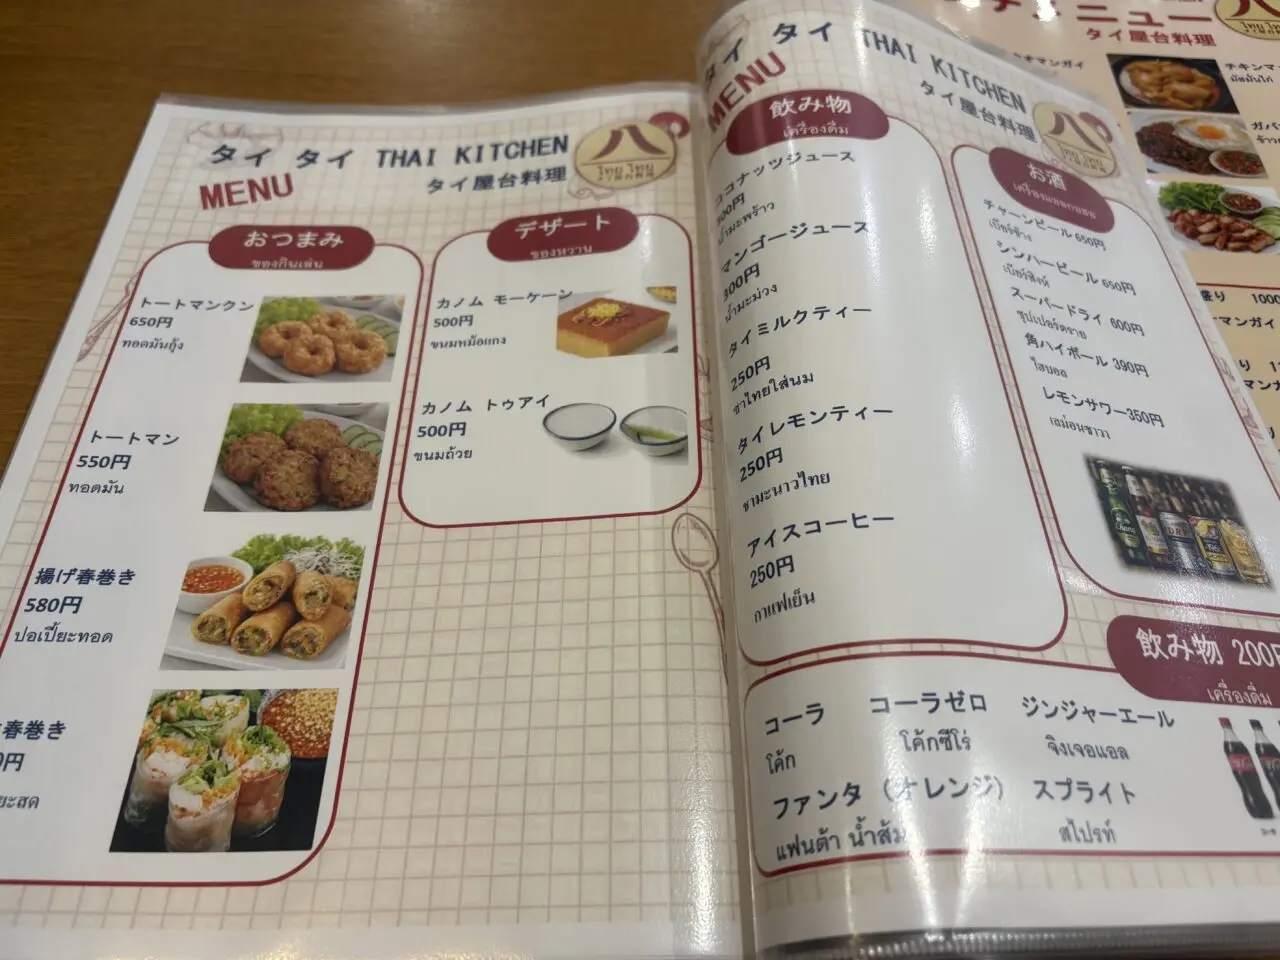 タイ タイ THAI KITCHEN
MENU
タイ屋台料理
ไทย ไทย
おつまみ
ของกินเล่น
トートマンクン
650円
ทอดมันกุ้ง
トートマン
550円
ทอดมัน
揚げ春巻き
580円
ปอเปี๊ยะทอด
春巻き
円
ยะสด
デザート
ของหวาน
カノム モーケーン
500円
ขนมหม้อแกง
カノム トゥアイ
500円
ขนมถ้วย
タイ タイ THAI KITCHEN
MENU
タイ屋台料理
ไทย ไทย
飲み物
เครื่องดื่ม
ココナッツジュース
300円
น้ำมะพร้าว
マンゴージュース
300円
น้ำมะม่วง
タイミルクティー
250円
ชาไทยใส่นม
タイレモンティー
250円
ชามะนาวไทย
アイスコーヒー
250円
กาแฟเย็น
お酒
เครื่องแอลกอฮอ
チャーンビール 650円
เบียร์ช้าง
シンハービール 650円
เบียร์สิงห์
スーパードライ 600円
ซุปเปอร์ดราย
角ハイボール 390円
ไฮบอล
レモンサワー350円
เลม่อนซาวา
飲み物 200円
เครื่องดื่ม
コーラ コーラゼロ ジンジャーエール
โค้ก โค้กซีโร่ จิงเจอแอล
ファンタ (オレンジ) スプライト
แฟนต้า น้ำส้ม สไปรท์
メニュー
タイ屋台料理
オマンガイ
チキンマ
มัสมั่นไก่
ガパ
ข้าว
盛り 1000
マンガイ